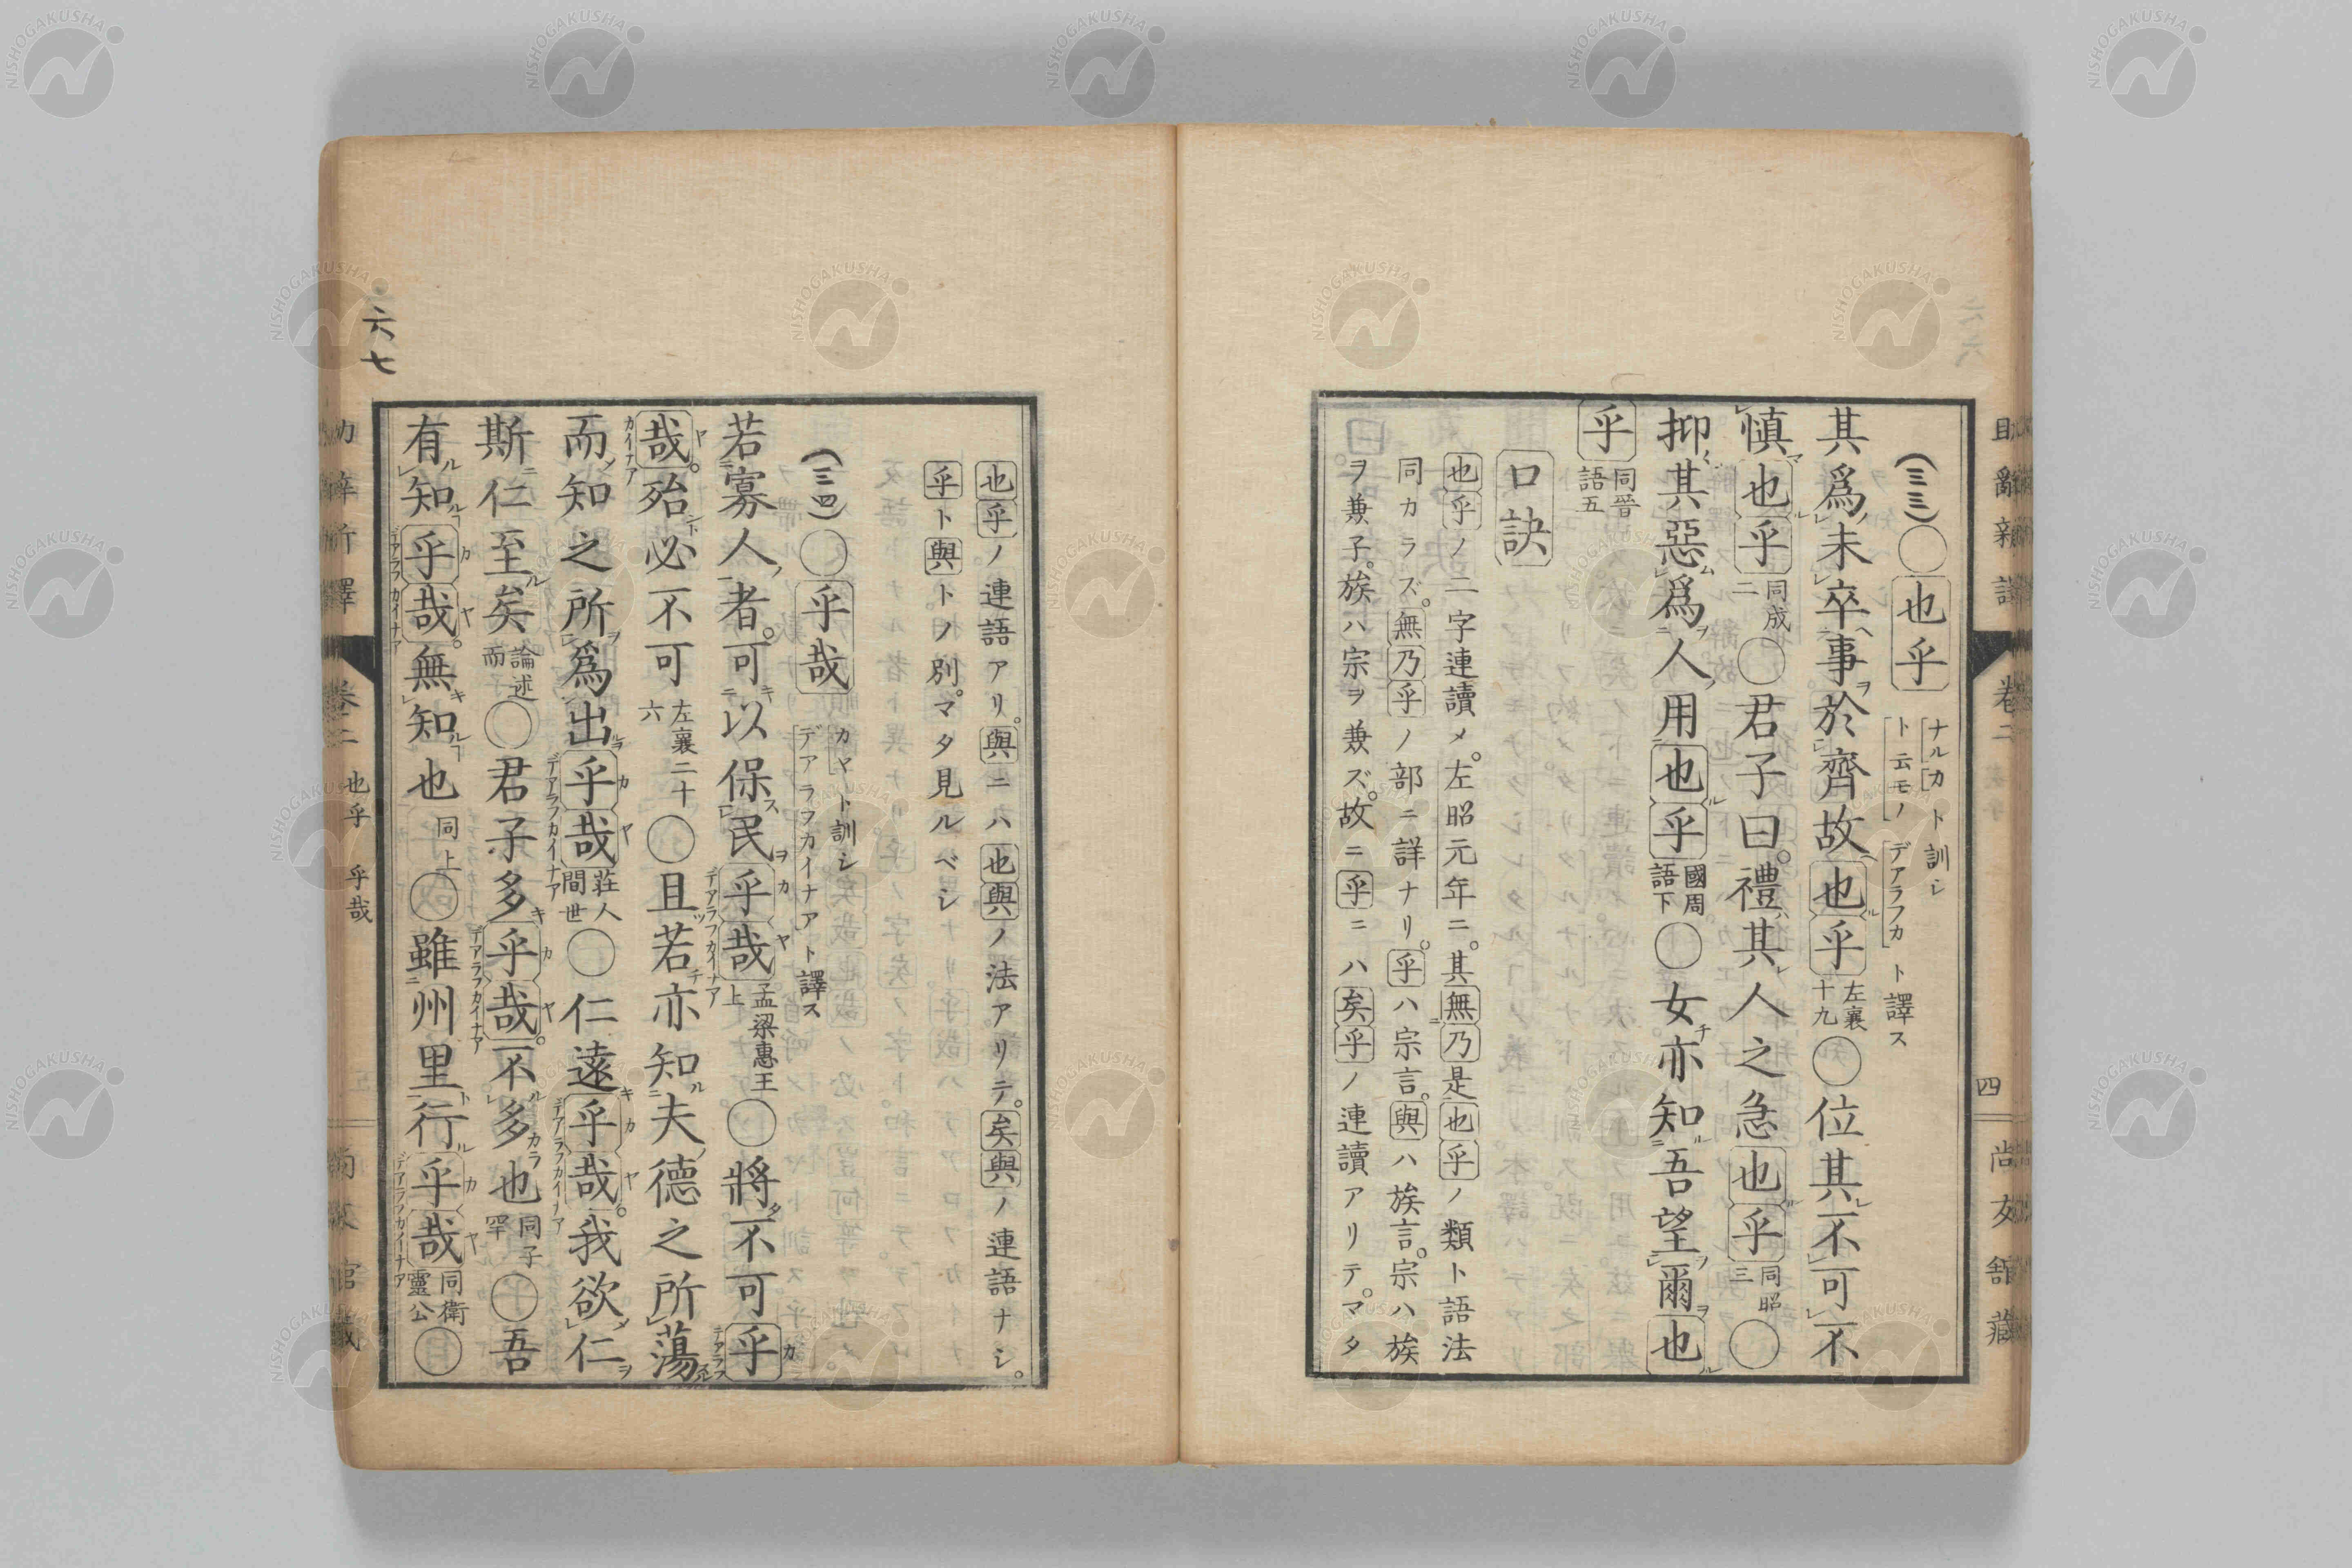 (三三)〇也乎 ナルカト訓シ ト云モノデアラフカト譯ス
其爲未卒事於齊故也乎 左襄十九 〇位其不可不
愼也乎 同成二 〇君子曰。禮其人之急也乎 同昭三 〇
抑其惡爲人用也乎 國周語下 〇女亦知吾望爾也
乎 同晉語五
口訣
也乎ノ二字連讀メ。左昭元年ニ。其無乃是也乎ノ類ト語法
同カラズ。無乃乎ノ部ニ詳ナリ。乎ハ宗言。與ハ族言。宗ハ族
ヲ兼子。族ハ宗ヲ兼ズ。故ニ乎ニハ矣乎ノ連讀アリテ。マタ
助辭新譯 卷二 四 尚友舘藏
也乎ノ連語アリ。與ニハ也與ノ法アリテ。矣與ノ連語ナシ。
乎ト與トノ別。マタ見ルベシ
(三四)〇乎哉 カヤト訓シ デアラフカイナアト譯ス
若寡人者。可以保民乎哉 孟梁惠王上 〇將不可乎
哉。殆必不可 左襄二十六 〇且若亦知夫德之所蕩
而知之所爲出乎哉 莊人間世 〇仁遠乎哉。我欲仁
斯仁至矣 論述而 〇君子多乎哉。不多也 同子罕 〇吾
有知乎哉。無知也 同上 〇雖州里行乎哉 同衞靈公 〇
卷二 也乎 乎哉
六七
NISHOGAKUSHA